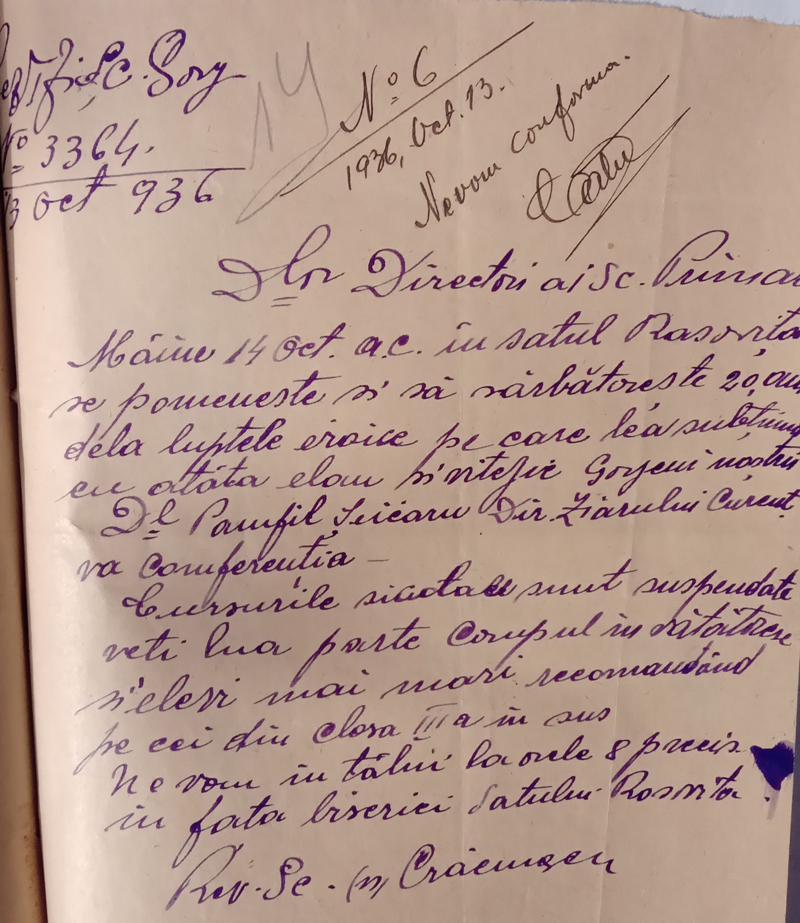 Sc. Gorj
No 3364.
13 Oct 936
14
No 6
1936, Oct. 13.
Ne vom conforma.
Dlor Directori ai Sc. Primar
Mâine 14 Oct. a.c. în satul Rasovita
se pomeneste si să sărbătoreste 20 ani
dela luptele eroice pe care le-a
cu atâta elan si vitejie Gorjeni noștrii
Dl Pamfil Șeicaru Dir. Ziarului Curent
va comferenția —
Cursurile sunt suspendate
veti lua parte Corpul învătătoresc
si elevi mai mari recomandând
pe cei din clasa III a în sus
Ne vom întâlni la orele 8 precis
în fata biserici satului Rasovita.
Rev. Sc. (ss)